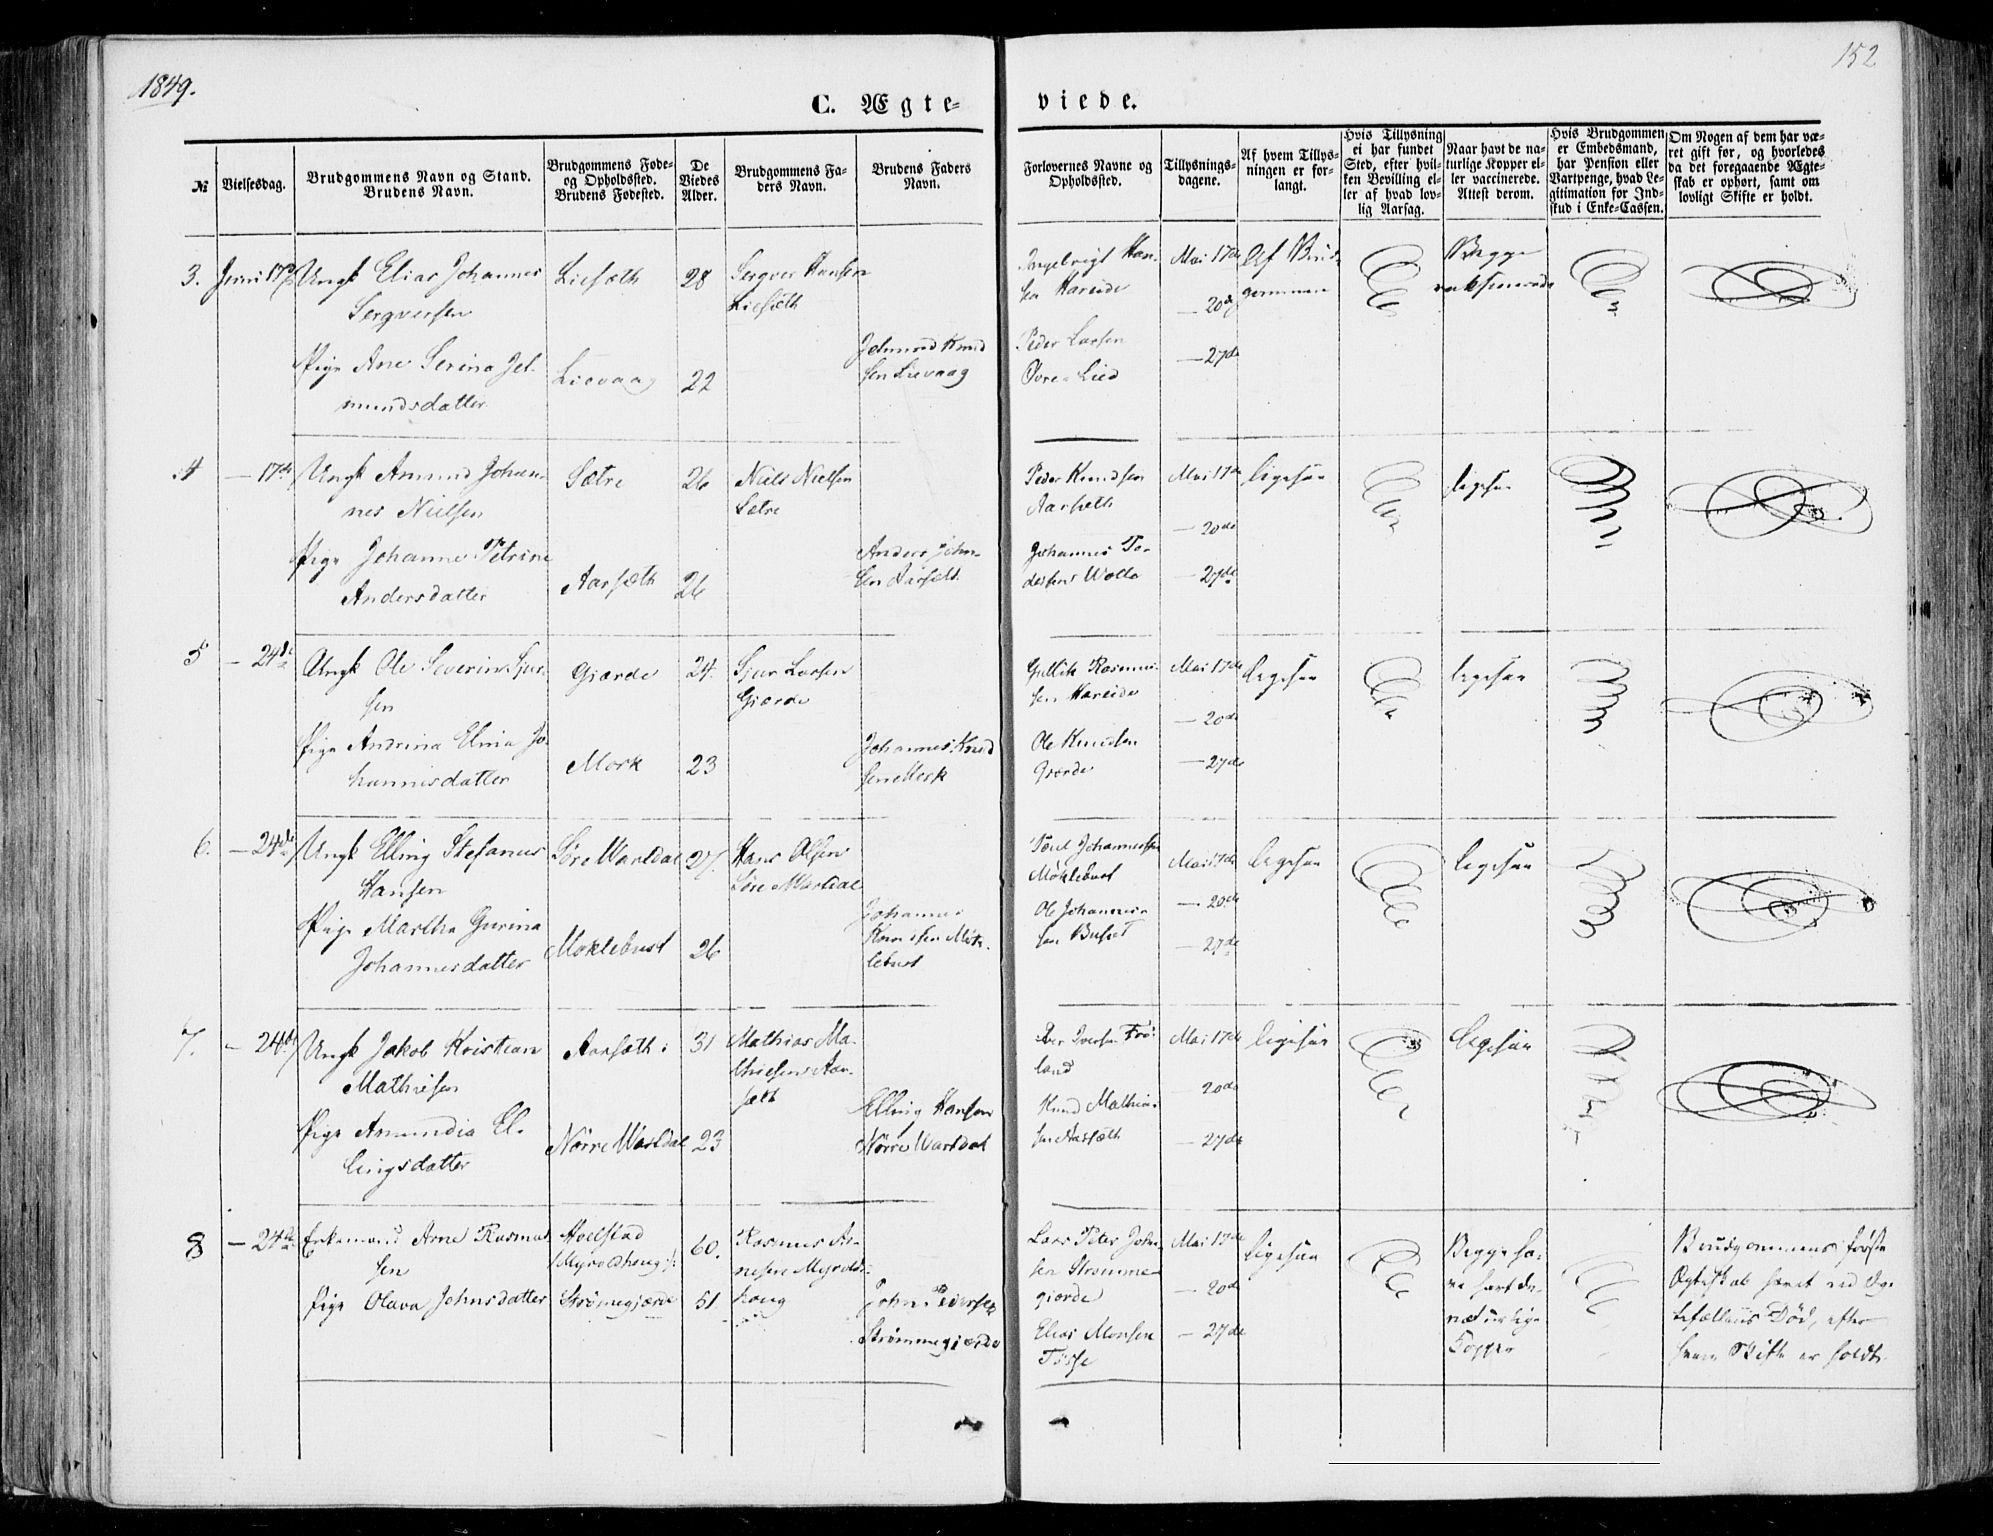 1849.
152
C. Ægte-
viede.
№
Vielsesdag.
Brudgommens Navn og Stand.
Brudens Navn.
Brudgommens Føde-
og Opholdssted.
Brudens Fødested.
De
Viedes
Alder.
Brudgommens Fa-
ders Navn.
Brudens Faders
Navn.
Forlovernes Navne og
Opholdssted.
Tillysnings-
dagene.
Af hvem Tillys-
ningen er for-
langt.
Hvis Tillysning
ei har fundet
Sted, efter hvil-
ken Bevilling el-
ler af hvad lov-
lig Aarsag.
Naar havt de na-
turlige Kopper el-
ler vaccinerede.
Attest derom.
Hvis Brudgommen
er Embedsmand,
har Pension eller
Vartpenge, hvad Le-
gitimation for Ind-
skud i Enke-Cassen.
Om Nogen af dem har væ-
ret gift før, og hvorledes
da det foregaaende Ægte-
skab er ophørt, samt om
lovligt Skifte er holdt.
3.
Juni 17de
Ungk Elias Johannes
Sergversen
Pige Ane Serina Jel-
mundsdatter
Liesæth
Liavaag
28
22
Sergver Hansen
Liesæth
Jelmund Knud
sen Liavaag
Ingebrigt Han-
sen Hareide
Peder Larsen
Øvre-Lied
Mai 17de
— 20de
— 27de
Af Brud-
gommen
Begge
vaksinerede
4
— 17de
Ungk Amund Johan-
nes Nielsen
Pige Johanne Petrine
Andersdatter
Sætre
Aarsæth
26
26
Niels Nielsen
Sætre
Anders John-
sen Aarseth
Peder Knudsen
Aarseth
Johannes To-
Mai 17de
— 20de
— 27de
ligesaa
ligesaa
5
— 24de
Ungk Ole Severin Sjur-
sen
Pige Andrina Elina Jo-
hannesdatter
Giærde
Mork
24.
23
Sjur Larsen
Giærde
Johannes Knud
sen Mork
Gullik Rasmus-
sen Hareide
Ole Knudsen
Giærde
Mai 17de
— 20de
— 27de
ligesaa
ligesaa
6.
— 24de
Ungk Elling Stefanus
Hansen
Pige Martha Gurina
Johannesdatter
Søre Wartdal
Moklebust
27.
26
Hans Olsen
Søre Wartdal
Johannes
Knudsen Mok-
lebust
Johannessen
Moklebust
Ole Johannes-
sen
Mai 17de
— 20de
— 27de
ligesaa
ligesaa
7.
— 24de
Ungk Jakob Kristian
Mathisen
Pige Amundia El-
lingsdatter
Aarsæth
Nörre Wartdal
31
23
Mathias Ma-
thiesen Aar-
sæth
Elling Hansen
Nörre Wartdal
Iversen Frö-
land
Knud Mathias-
sen Aarsæth
Mai 17de
— 20de
— 27de
ligesaa
ligesaa
8
— 24de
Enkemand Arne Rasmus
sen
Pige Olava Johnsdatter
Hoelstad
Myroldhoug
Strømegjærde
60.
51.
Rasmus Ar-
nesen Myrold-
houg
John Pedersen
Strømmegjærde
Lars Peter John-
sen Strømme-
giærde
Elias Monsen
Tosse
Mai 17de
— 20de
— 27de
ligesaa
Begge ha-
ve havt de
naturlige
Kopper
Brudgommens første
Ægteskab hævet ved Æg-
tefællens Død, efter
hvem Skifte er holdt.